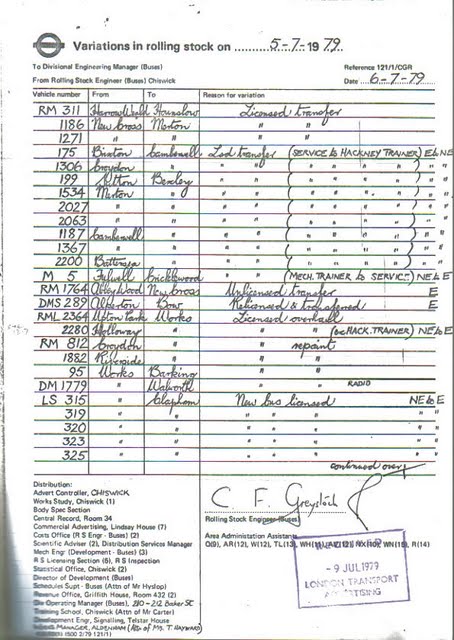 Variations in rolling stock on 5-7-1979.
To Divisional Engineering Manager (Buses) Reference 121/1/CGR
From Rolling Stock Engineer (Buses) Chiswick Date 6-7-79
Vehicle number From To Reason for variation
RM 311 Harrow Weald Hounslow Licensed transfer
1186 New Cross Merton " "
1271 " " " "
175 Brixton Camberwell Lsd transfer (SERVICE to HACKNEY TRAINER) E to NE
1306 Croydon " " " ( " " " " ) " "
199 Sutton Bexley " " ( " " " " ) " "
1534 Merton " " " ( " " " " ) " "
2027 " " " " ( " " " " ) " "
2063 " " " " ( " " " " ) " "
1187 Camberwell " " " ( " " " " ) " "
1367 " " " " ( " " " " ) " "
2200 Battersea " " " ( " " " " ) " "
M 5 Fulwell Cricklewood " " (MECH. TRAINER to SERVICE) NE to E
RM 1764 Abbey Wood New Cross Unlicensed transfer E
DMS 289 Alperton Bow Relicensed & transferred E
RML 2364 Upton Park Works Licensed overhaul
2280 Holloway " " " (exHACK. TRAINER) NE to E
RM 812 Croydon " " repaint
1882 Riverside " " "
95 Works Barking " "
DM 1779 " Walworth " " RADIO
LS 315 " Clapham New bus licensed NE to E
319 " " " " " " "
320 " " " " " " "
323 " " " " " " "
325 " " " " " " "
continued over
Distribution:
Advert Controller, CHISWICK
Works Study, Chiswick (1)
Body Spec Section
Central Record, Room 34
Commercial Advertising, Lindsay House (7)
Costs Office (R S Engr - Buses) (2)
Scientific Adviser (2), Distribution Services Manager
Mech Engr (Development - Buses) (3)
R S Licensing Section (5), R S Inspection
Statistical Office, Chiswick (2)
Director of Development (Buses)
Schedules Supt - Buses (Attn of Mr Hyslop)
Revenue Office, Griffith House, Room 432 (2)
Operating Manager (Buses), 210-212 Baker St
Training School, Chiswick (Attn of Mr Carter)
Development Engr, Signalling, Telstar House
MANAGER, ALDENHAM (Attn of Mr T. HAYWARD)
C. F. Greystock
Rolling Stock Engineer (Buses)
Area Administration Assistants
O(9), AR(12), W(12), TL(13), R(14)
- 9 JUL 1979
LONDON TRANSPORT
ADVERTISING